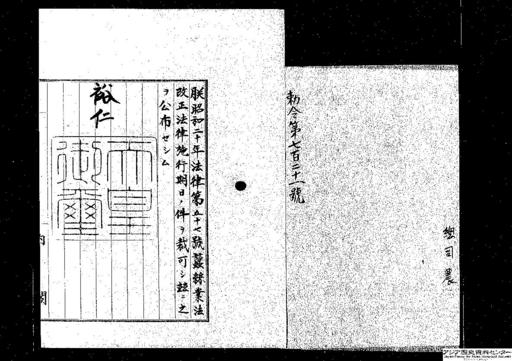 勅令第七百二十一號
朕昭和二十年法律第五十七號蠶絲業法
改正法律施行期日ノ件ヲ裁可シ茲ニ之
ヲ公布セシム
裕仁
天皇
御璽
内閣
アジア歴史資料センター